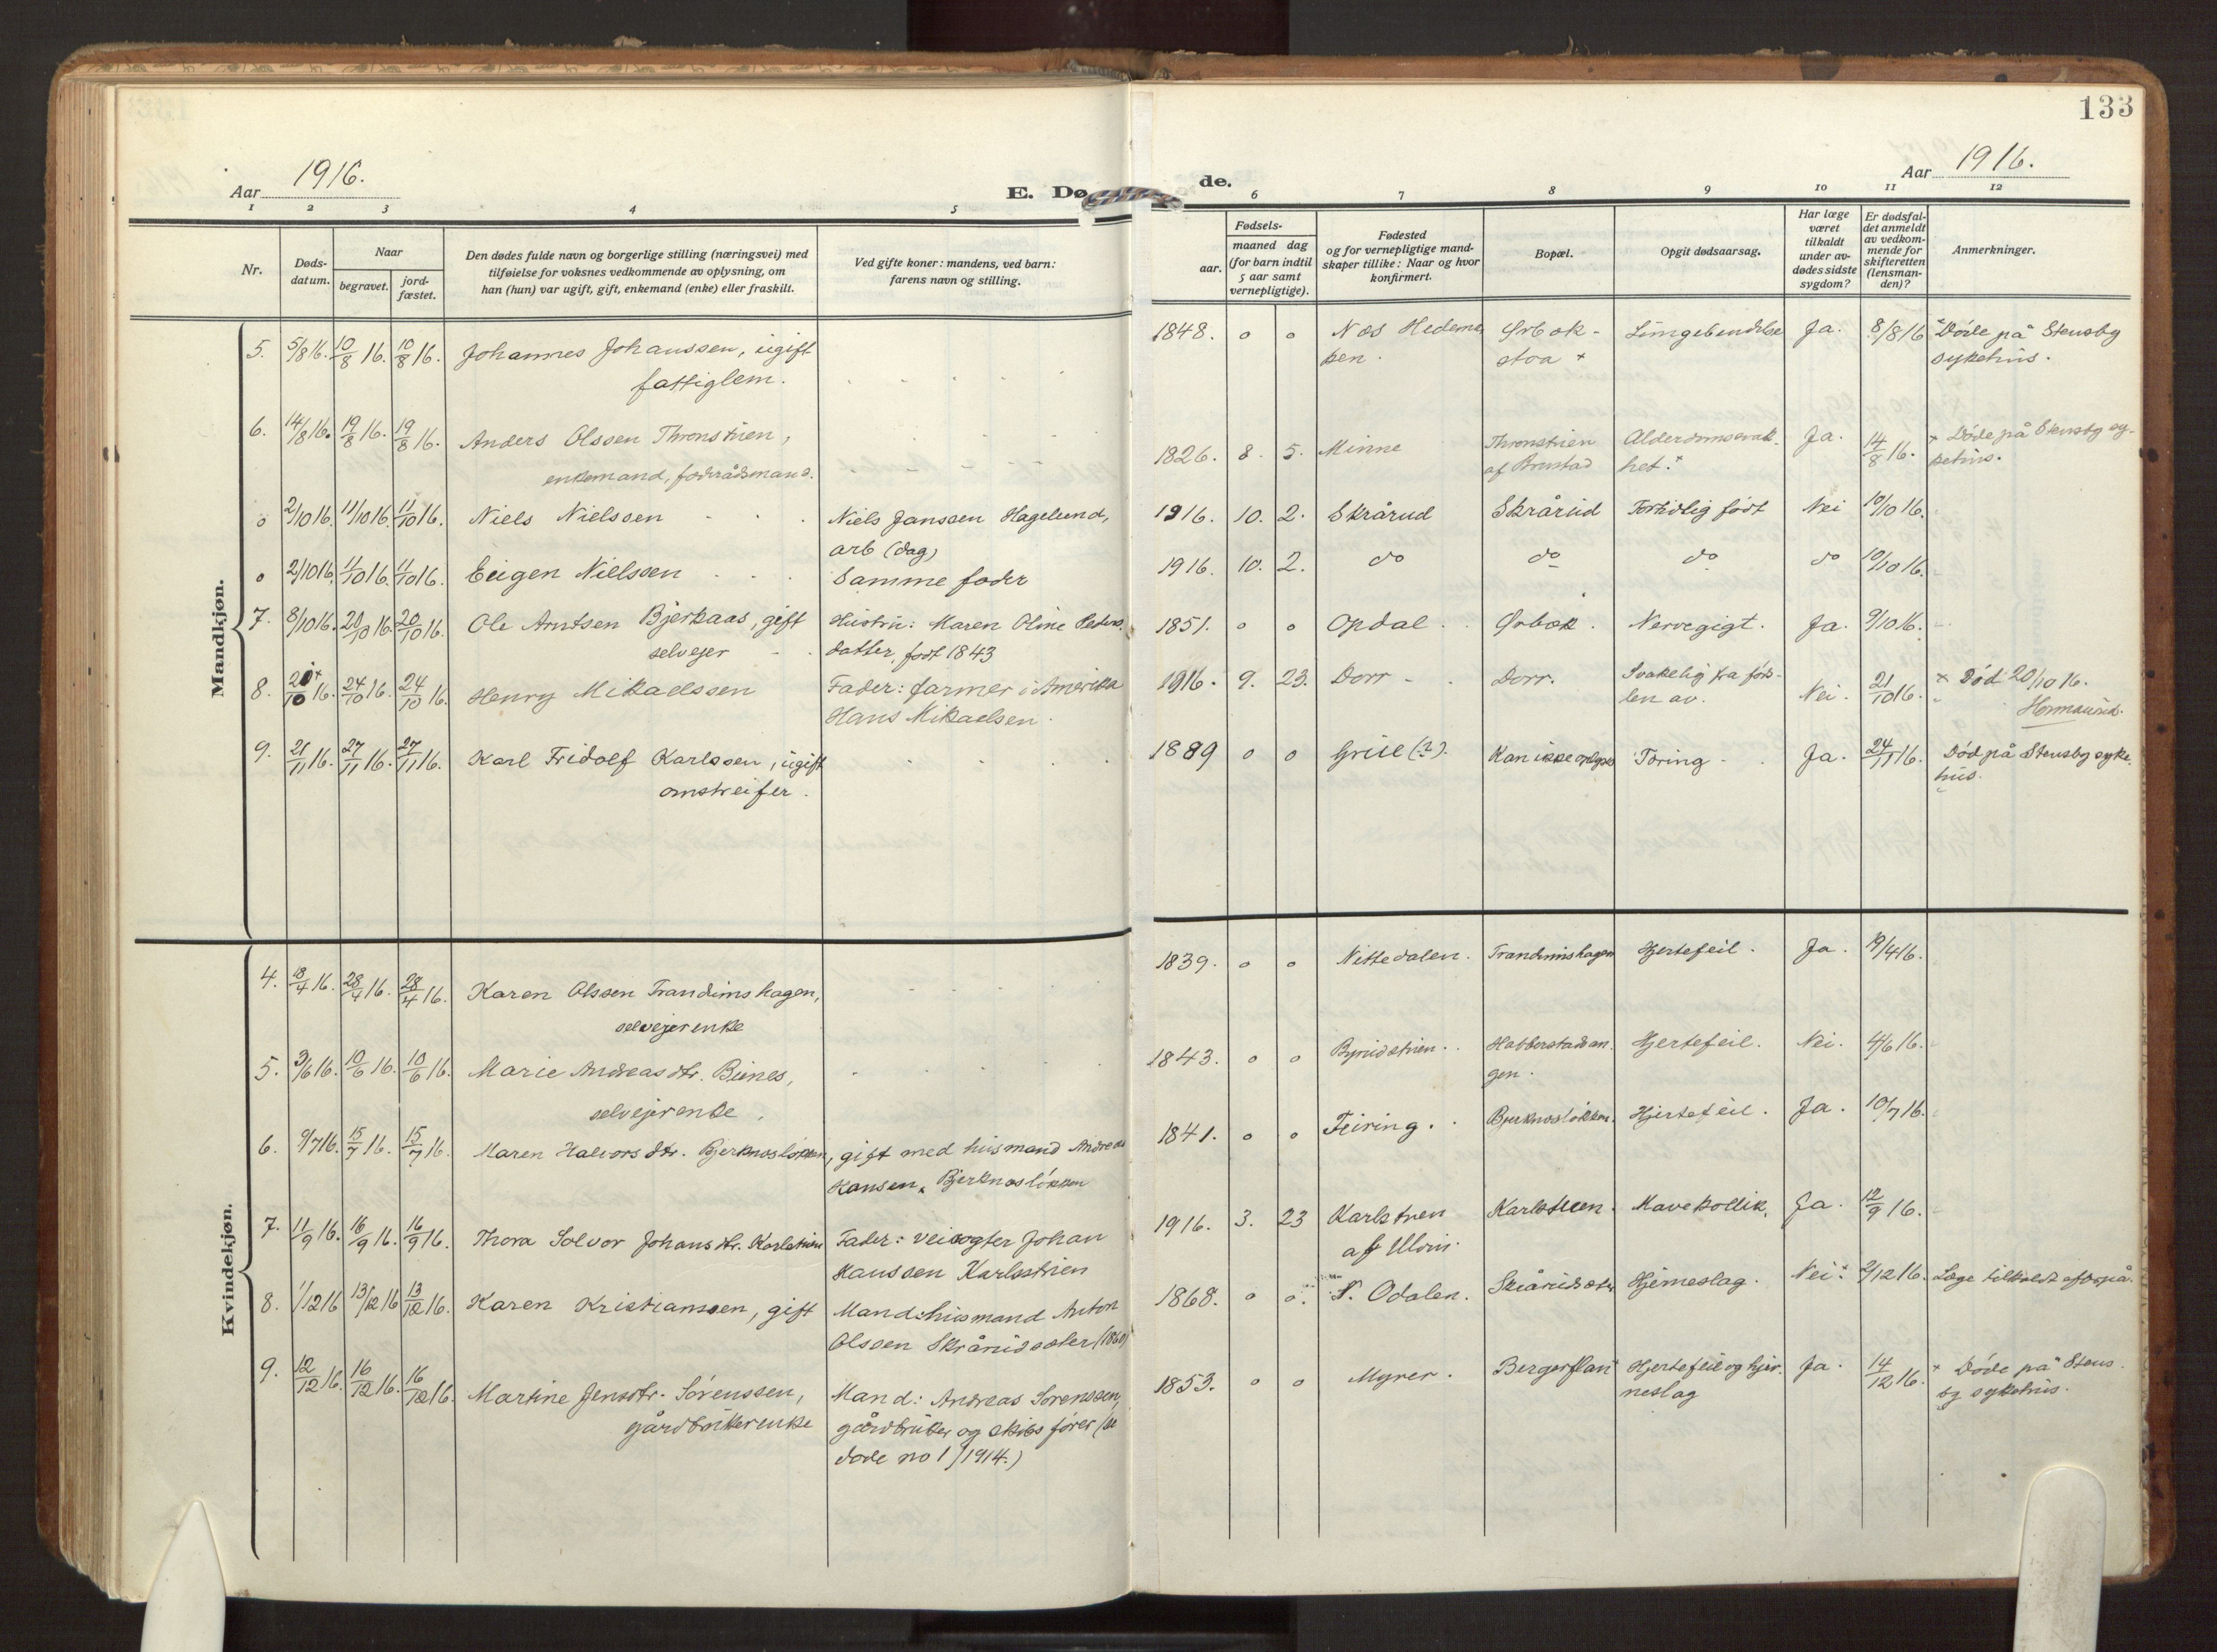 133
Aar 1916.
E. Dø
de.
Aar 1916.
1 2 3 4 5
6 7 8 9 10 11 12
Nr.
Døds-
datum.
Naar
begravet.
jord-
fæstet.
Den dødes fulde navn og borgerlige stilling (næringsvei) med
tilføielse for voksnes vedkommende av oplysning, om
han (hun) var ugift, gift, enkemand (enke) eller fraskilt.
Ved gifte koner: mandens, ved barn:
farens navn og stilling.
Fødsels-
aar.
maaned dag
(for barn indtil
5 aar samt
vernepligtige).
Fødested
og for vernepligtige mand-
skaper tillike: Naar og hvor
konfirmert.
Bopæl.
Opgit dødsaarsag.
Har læge
været
tilkaldt
under av-
dødes sidste
sygdom?
Er dødsfal-
det anmeldt
av vedkom-
mende for
skifteretten
(lensman-
den)?
Anmerkninger.
Mandkjøn.
5. 5/8 16. 10/8 16. 10/8 16. Johannes Johanssen, ugift 1848. o o Næs Hedema Ørbæk- Lungebendelse Ja. 8/8 16 × Døde på Stensby
fattiglem. ken. stoa × sykehus.
6. 14/8 16. 19/8 16. 19/8 16. Anders Olssen Thronstuen, 1826. 8. 5. Minne Thronstuen Alderdomsvak- Ja. 14/8 16. × Døde på Stensby sy-
enkemand, foderådsmand. af Brustad het. × kehus.
o 2/10 16. 11/10 16. 11/10 16. Niels Nielssen Niels Janssen Hagelund, 1916. 10. 2. Skrårud Skrårud Fortidlig født Nei 10/10 16.
arb (dag)
o 2/10 16. 11/10 16. 11/10 16. Eugen Nielssen Samme fader 1916. 10. 2. do do do do 10/10 16.
7. 8/10 16. 20/10 16. 20/10 16. Ole Arntsen Bjerkaas, gift Hustru: Maren Oline Peders 1851. o o Opdal. Ørbæk. Nervegigt. Ja. 9/10 16.
selvejer datter, født 1843
8. 20/10 × 16. 24/10 16. 24/10 16. Henry Mikaelssen Fader: farmer i Amerika 1916. 9. 23. Dorr Dorr. Svakelig fra føds- Nei. 21/10 16. × Død 20/10 16.
Hans Mikaelsen. len av.
9. 21/11 16. 27/11 16. 27/11 16. Karl Fridolf Karlssen, ugift 1889 o o Grue (?). Kan ikke oplyses Tæring Ja. 24/11 16. Død på Stensby syke-
omstreifer. hus.
Kvindekjøn.
4. 18/4 16. 28/4 16. 28/4 16. Karen Olssen Trandumshagen, 1839. o o Nittedalen. Trandumshagen Hjertefeil. Ja. 19/4 16.
selvejerenke
5. 3/6 16. 10/6 16. 10/6 16. Marie Andreasdtr. Bunes, 1843. o o Byrudstuen. Habberstadan- Hjertefeil. Nei. 4/6 16.
selvejerenke. gen.
6. 9/7 16. 15/7 16. 15/7 16. Maren Halvorsdtr. Bjerknesløkken, gift med husmand Andreas 1841. o o Feiring. Bjerknesløkken. Hjertefeil. Ja. 10/7 16.
Hansen, Bjerknesløkken
7. 11/9 16. 16/9 16. 16/9 16. Thora Solvor Johansdtr. Karlstuen Fader: veivogter Johan 1916. 3. 23 Karlstuen Karlstuen. Mavekollik. Ja. 12/9 16.
Hanssen Karlsstuen af Ulvin.
8. 1/12 16 13/12 16 13/12 16. Karen Kristianssen, gift Mand: husmand Anton 1868. o o. N. Odalen. Skrårudsæter Hjerneslag. Nei. × 2/12 16. Læge tilkaldt
Olssen Skrårudsæter (1860)
9. 12/12 16. 16/12 16. 16/12 16. Martine Jensdtr. Sørenssen, Mand: Andreas Sørenssen, 1853. o o Myrer. Bergerflan Hjertefeil og hjer- Ja. 14/12 16. × Døde på Stens-
gårdbrukerenke gårdbruker og skibsfører (se neslag by sykehus.
døde no 1/1914.)